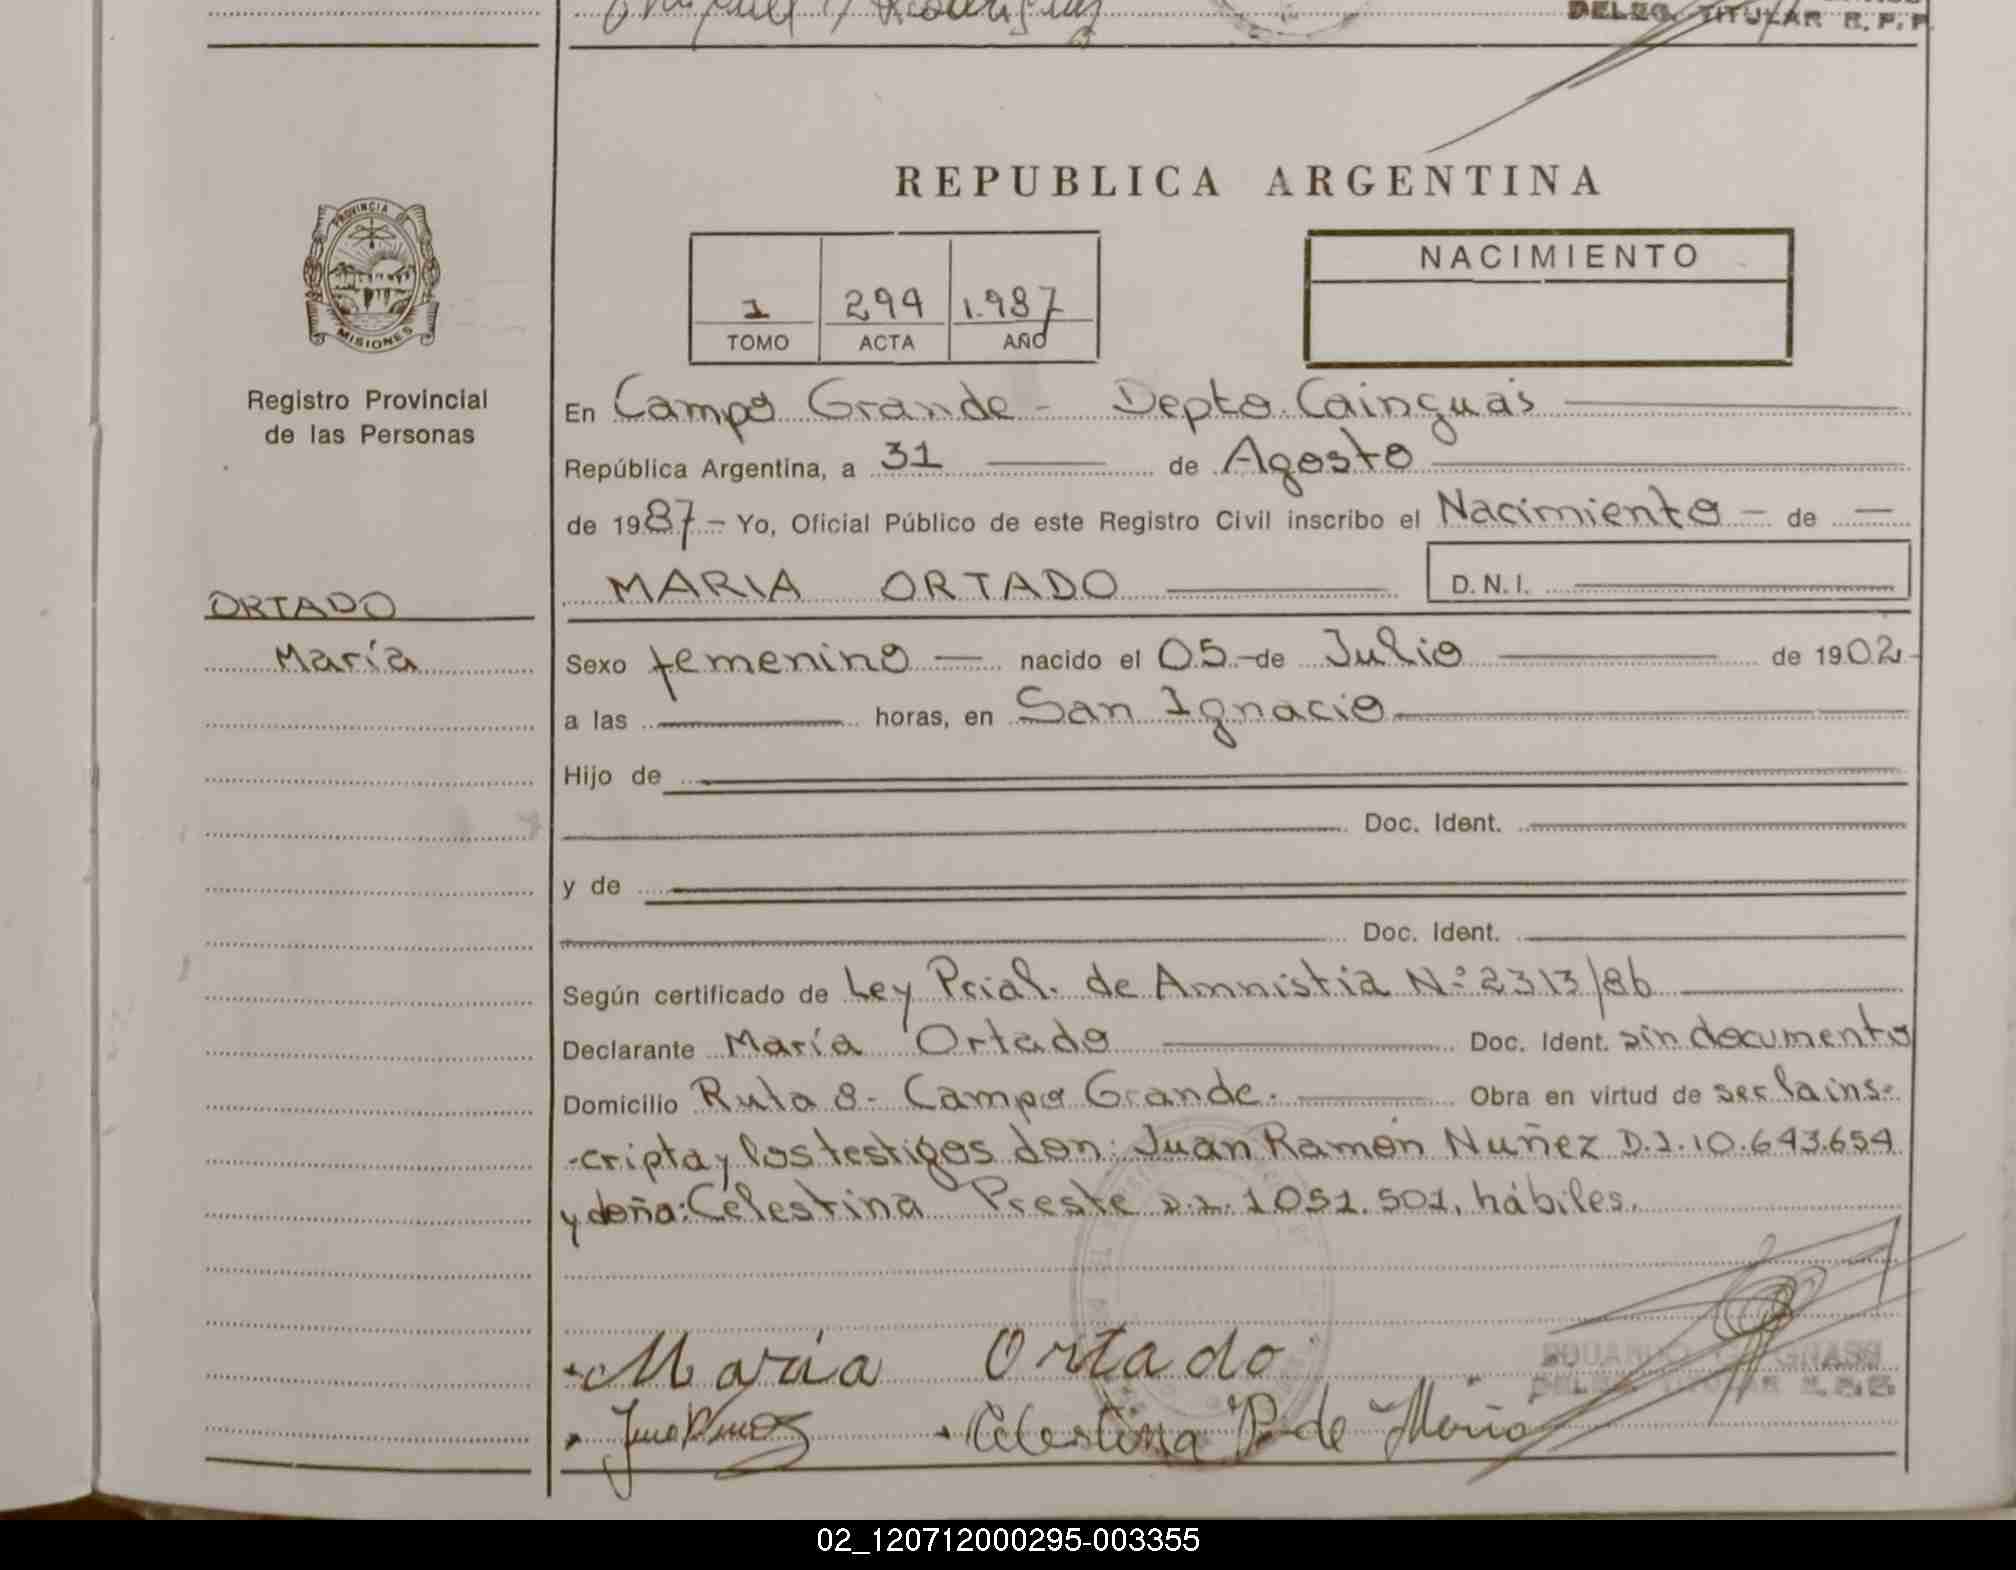 DELEG. TITULAR R.P.P.
REPUBLICA ARGENTINA
PROVINCIA
MISIONES
Registro Provincial
de las Personas
1 294 1.987
TOMO ACTA AÑO
NACIMIENTO
En Campo Grande - Depto. Cainguás
República Argentina, a 31 de Agosto
de 1987 - Yo, Oficial Público de este Registro Civil inscribo el Nacimiento - de -
ORTADO
María
MARIA ORTADO D.N.I.
Sexo femenino - nacido el 05 - de Julio de 1902 -
a las horas, en San Ignacio
Hijo de
Doc. Ident.
y de
Doc. Ident.
Según certificado de Ley Pcial. de Amnistia N:º 2313/86
Declarante María Ortado Doc. Ident. sin documento
Domicilio Ruta 8 - Campo Grande. Obra en virtud de ser la ins-
-cripta y los testigos don: Juan Ramón Nuñez D.I. 10.643.654
y doña: Celestina Preste D.I. 1.051.501, hábiles.
María Ortado
Celestina P. de
DELEG. TITULAR R.P.P.
02_120712000295-003355